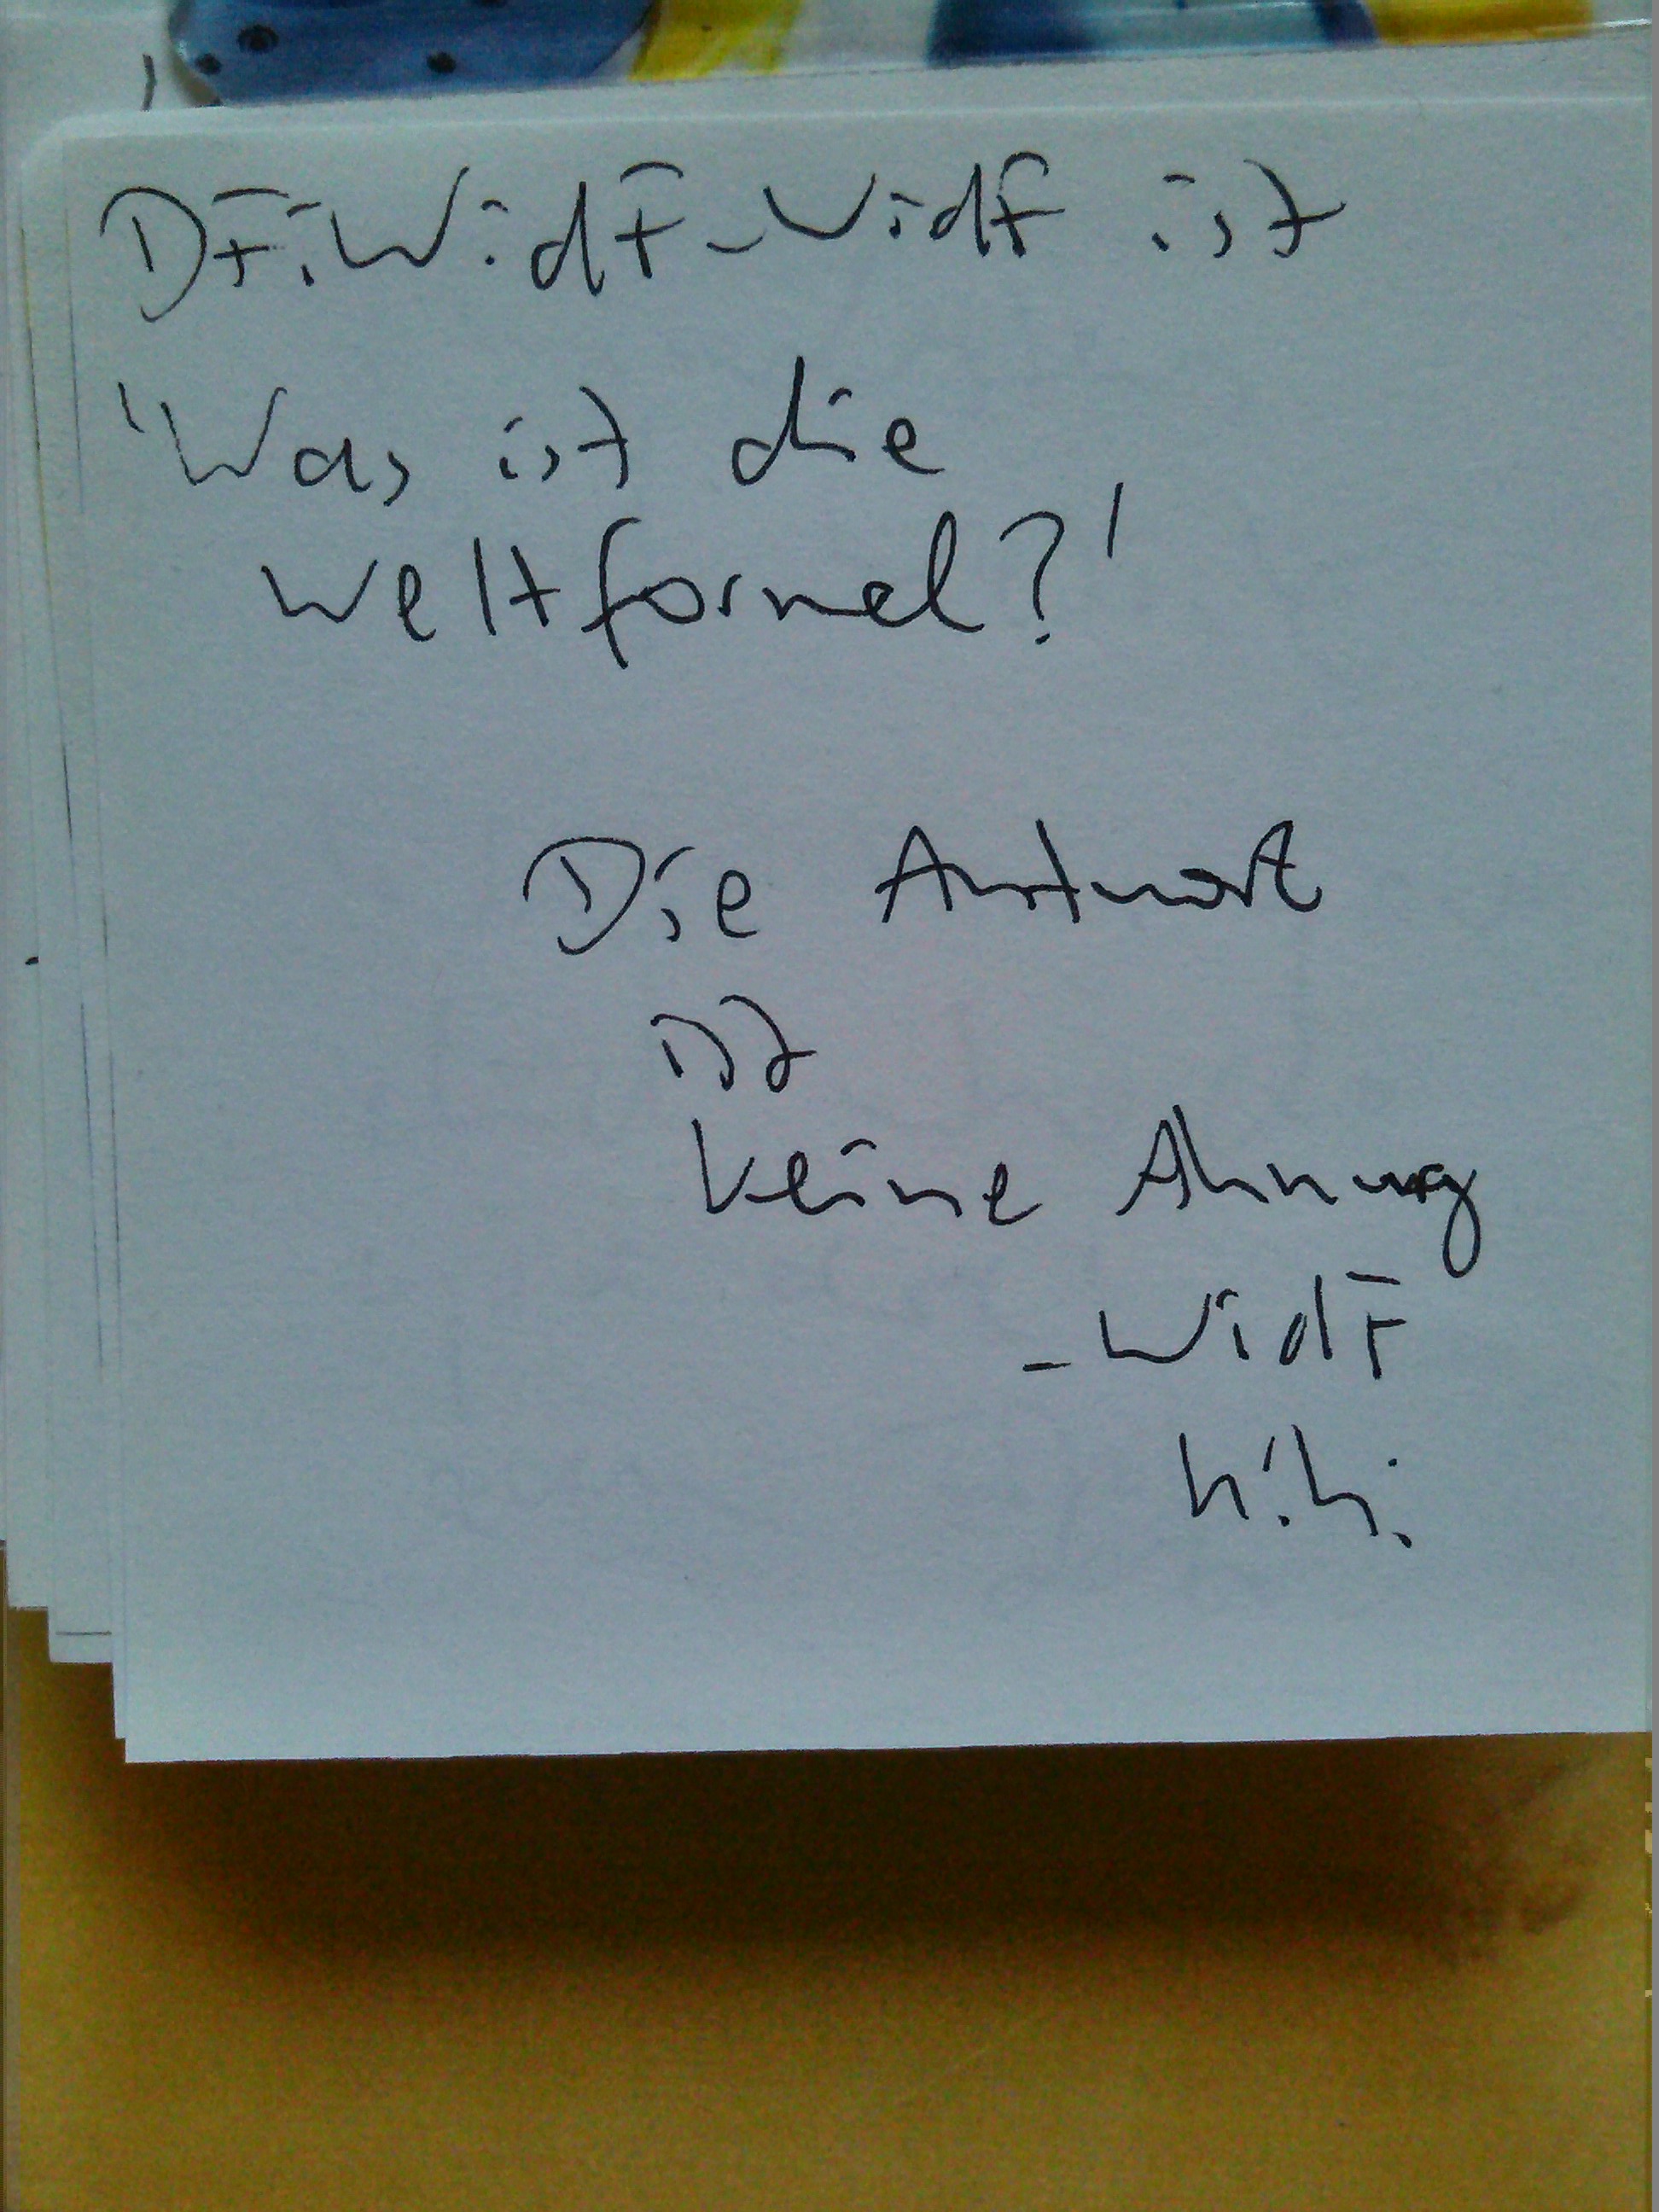 DFiWidF-WidF ist
'Was ist die
Weltformel?'
Die Antwort
ist
keine Ahnung
- WidF
hihi